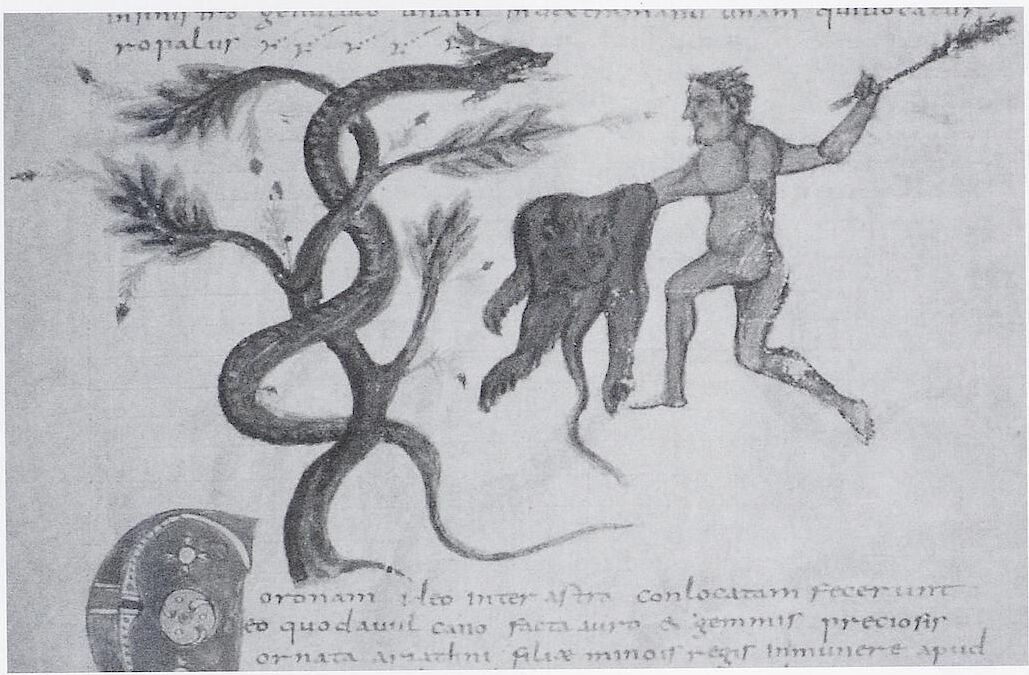 insinistro unam unam quivocatur
ropalus
Coronam ideo inter astra conlocatam fecerunt
eo quodavul cano facta auro & gemmis preciosis
ornata ariathni filiæ minois regis inmunere apud